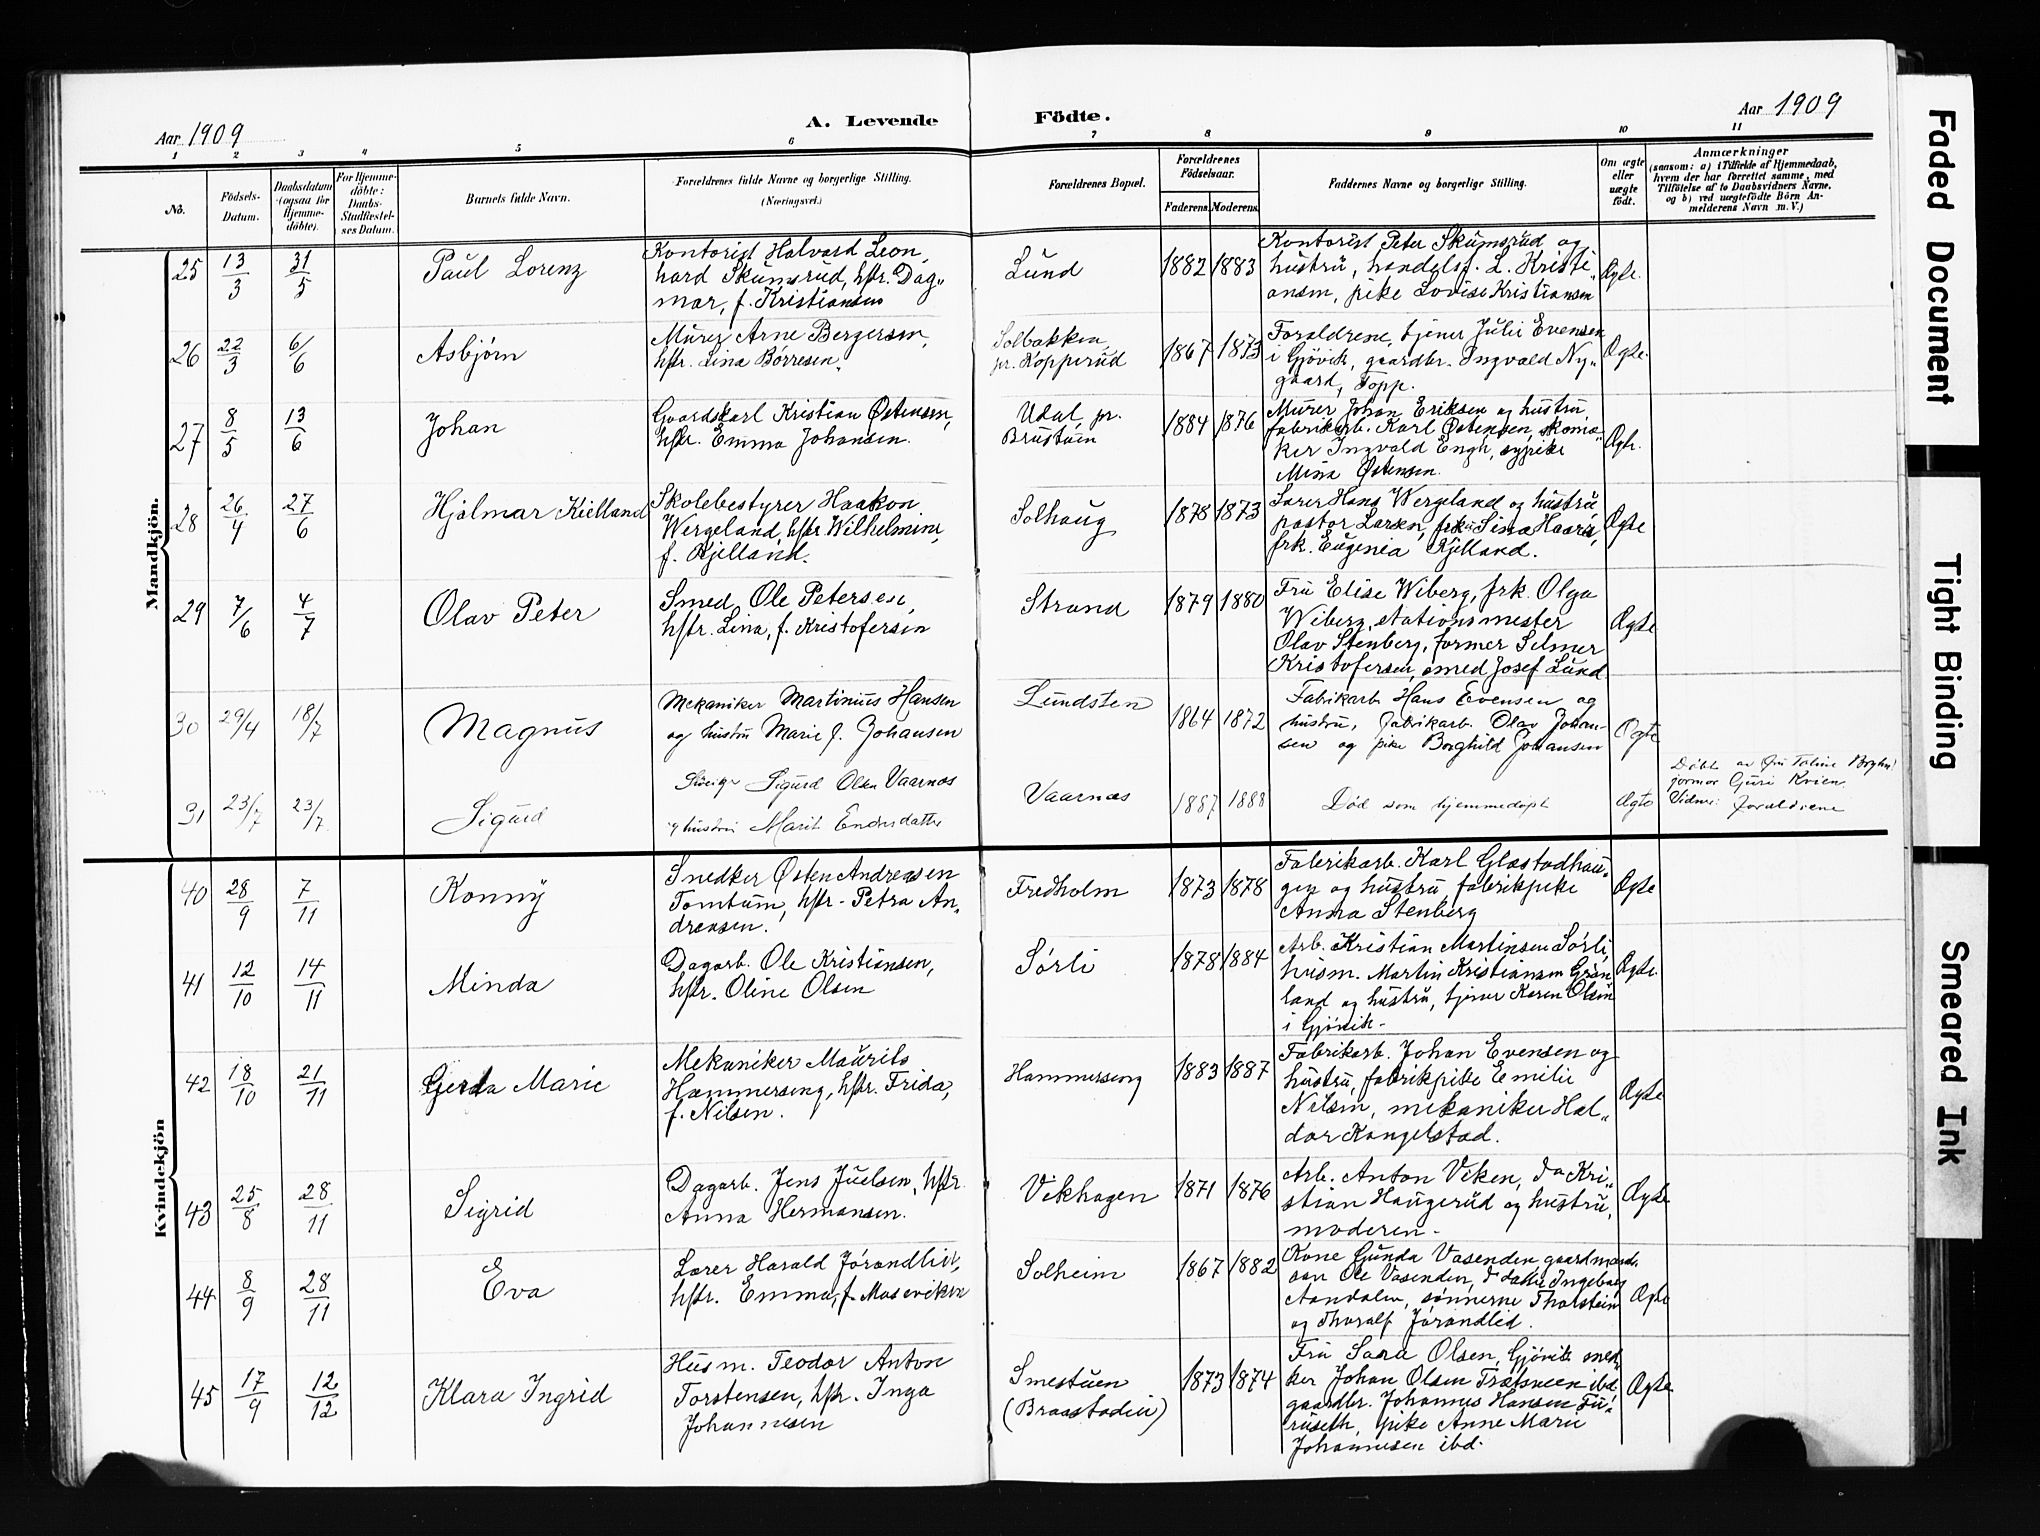 Aar 1909
A. Levende
Födte.
Aar 1909
1 2 3 4 5 6 7 8 9 10 11
No.
Födsels-
Datum.
Daabsdatum
(ogsaa for
Hjemme-
döbte).
For Hjemme-
döbte:
Daabs-
Stadfæstel-
ses Datum.
Barnets fulde Navn.
Forældrenes fulde Navne og borgerlige Stilling.
(Næringsvei.)
Forældrenes Bopæl.
Forældrenes
Födselsaar.
Faderens. Moderens.
Faddernes Navne og borgerlige Stilling.
Om ægte
eller
uægte
födt.
Anmærkninger
(saasom: a) i Tilfælde af Hjemmedaab,
hvem der har forrettet samme, med
Tilföielse af to Daabsvidners Navne,
og b) ved uægtefödte Börn An-
melderens Navn m. V.)
Mandkjön.
25
13/3
31/5
Paul Lorenz
Kontorist Halvard Leon-
hard Skumsrud, hstr. Dag-
mar, f. Kristiansen
Lund
1882 1883
Kontorist Peter Skumsrud og
hustru, handelsf. L. Kristi-
ansen, pike Lovise Kristiansen
Ægte.
26
22/3
6/6
Asbjørn
Murer Arne Bergersen,
hstr. Lina Børresen.
Solbakken,
pr. Kopperud
1867 1873
Forældrene, tjener Julie Evensen
i Gjövik, gaardbr. Ingvald Ny-
gaard, Topp.
Ægte.
27
8/5
13/6
Johan
Gaardskarl Kristian Østensen,
hstr. Emma Johansen.
Udal, pr.
Brustuen
1884 1876
Murer Johan Eriksen og hustru,
fabrikarb. Karl Østensen, skoma-
ker Ingvald Engh, sypike
Mina Østensen.
Ægte.
28
26/4
27/6
Hjalmar Kielland
Skolebestyrer Haakon
Wergeland, hstr. Wilhelmine,
f. Kjelland.
Solhaug
1878 1873
Lærer Hans Wergeland og hustru,
pastor Larsen, frk. Sina
frk. Eugenia Kjelland.
Ægte
29
7/6
4/7
Olav Peter
Smed Ole Petersen,
hstr. Lina, f. Kristofersen
Strand
1879 1880
Fru Elise Wiberg, frk. Olga
Wiberg, stationsmester
Olav Stenberg, former Selmer
Kristofersen, smed Josef Lund
Ægte
30
29/4
18/7
Magnus
Mekaniker Martinius Hansen
og hustru Marie f. Johansen
Lundsten
1864 1872
Fabrikarb Hans Evensen og
hustru, fabrikarb. Olav Johan-
sen og pike Borghild Johansen
Ægte
31
23/7
23/7
Sigurd
Sigurd Olsen Vaarnæs
og hustru Marit Endresdatter
Vaarnæs
1887 1888
Död som hjemmedöpt
Ægte
Döbt av
farmor Guri Kvien
Vidner: forældrene
Kvindekjön
40
28/9
7/11
Konny
Snedker Østen Andreasen
Tomtum, hstr. Petra An-
dreasen.
Fredholm
1873 1878
Fabrikarb. Karl Glæstadhau-
gen og hustru, fabrikpike
Anna Stenberg
Ægte
41
12/10
14/11
Minda
Dagarb. Ole Kristiansen,
hstr. Oline Olsen
Sørli
1878 1884
Arb. Kristian Martinsen Sørli,
husm. Martin Kristiansen Grøn-
land og hustru, tjener Karen Olsen
i Gjövik.
Ægte.
42
18/10
21/11
Gerda Marie
Mekaniker Maurits
Hammerseng, hstr. Frida,
f. Nilsen.
Hammerseng
1883 1887
Fabrikarb. Johan Evensen og
hustru, fabrikpike Emilie
Nilsen, mekaniker Hal-
dor Kongelstad.
Ægte
43
25/8
28/11
Sigrid
Dagarb. Jens Juelsen, hstr
Anna Hermansen.
Vikhagen
1871 1876
Arb. Anton Viken, do Kri-
stian Haugerud og hustru,
moderen.
Ægte
44
8/9
28/11
Eva
Lærer Harald Jørandlid,
hstr. Emma, f. Moseviken
Solheim
1867 1882
Kone Gunda Vasenden gaardmand
søn Ole Vasenden, datter Ingeborg
Aandalen, sønnerne Thorstein
og Thoralf Jørandlid.
Ægte
45
17/9
12/12
Klara Ingrid
Husm. Teodor Anton
Torstensen, hstr. Inga
Johannesen
Smestuen
(Braastadlie)
1873 1874
Fru Sara Olsen, Gjövik sned-
ker Johan Olsen ibd.
gaardbr. Johannes Hansen Fu-
ruseth, pike Anne Marie
Johannesen ibd.
Ægte
Faded Document
Tight Binding
Smeared Ink